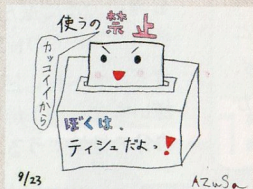 使うの禁止
カッコイイから
ぼくは、
ティシュだよっ!
9/23
AZuSa